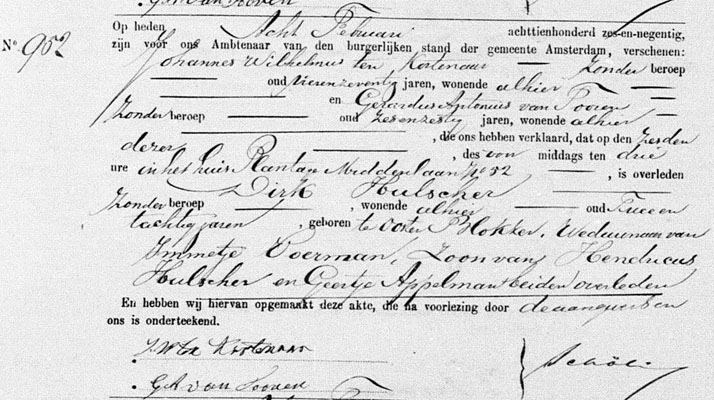 Op heden Acht Februari achttienhonderd zes-en-negentig,
Nº 952
zijn voor ons Ambtenaar van den burgerlijken stand der gemeente Amsterdam, verschenen:
Johannes Wilhelmus ten Kortenaar Zonder beroep
oud vierenzeventig jaren, wonende alhier
en Gerardus Antonius van Tooren
Zonder beroep oud zesenzestig jaren, wonende alhier
, die ons hebben verklaard, dat op den zesden
dezer , des voor middags ten drie
ure in het huis Plantage Middenlaan Nº 52 , is overleden
Dirk Hulscher
Zonder beroep , wonende alhier oud Twee en
tachtig jaren , geboren te Ooster Blokker, Weduwnaar van
Immetje Voerman, Zoon van Hendricus
Hulscher en Geertje Appelman beiden overleden
En hebben wij hiervan opgemaakt deze akte, die na voorlezing door de aangevers en
ons is onderteekend.
J.W. ten Kortenaar
G.A. van Tooren